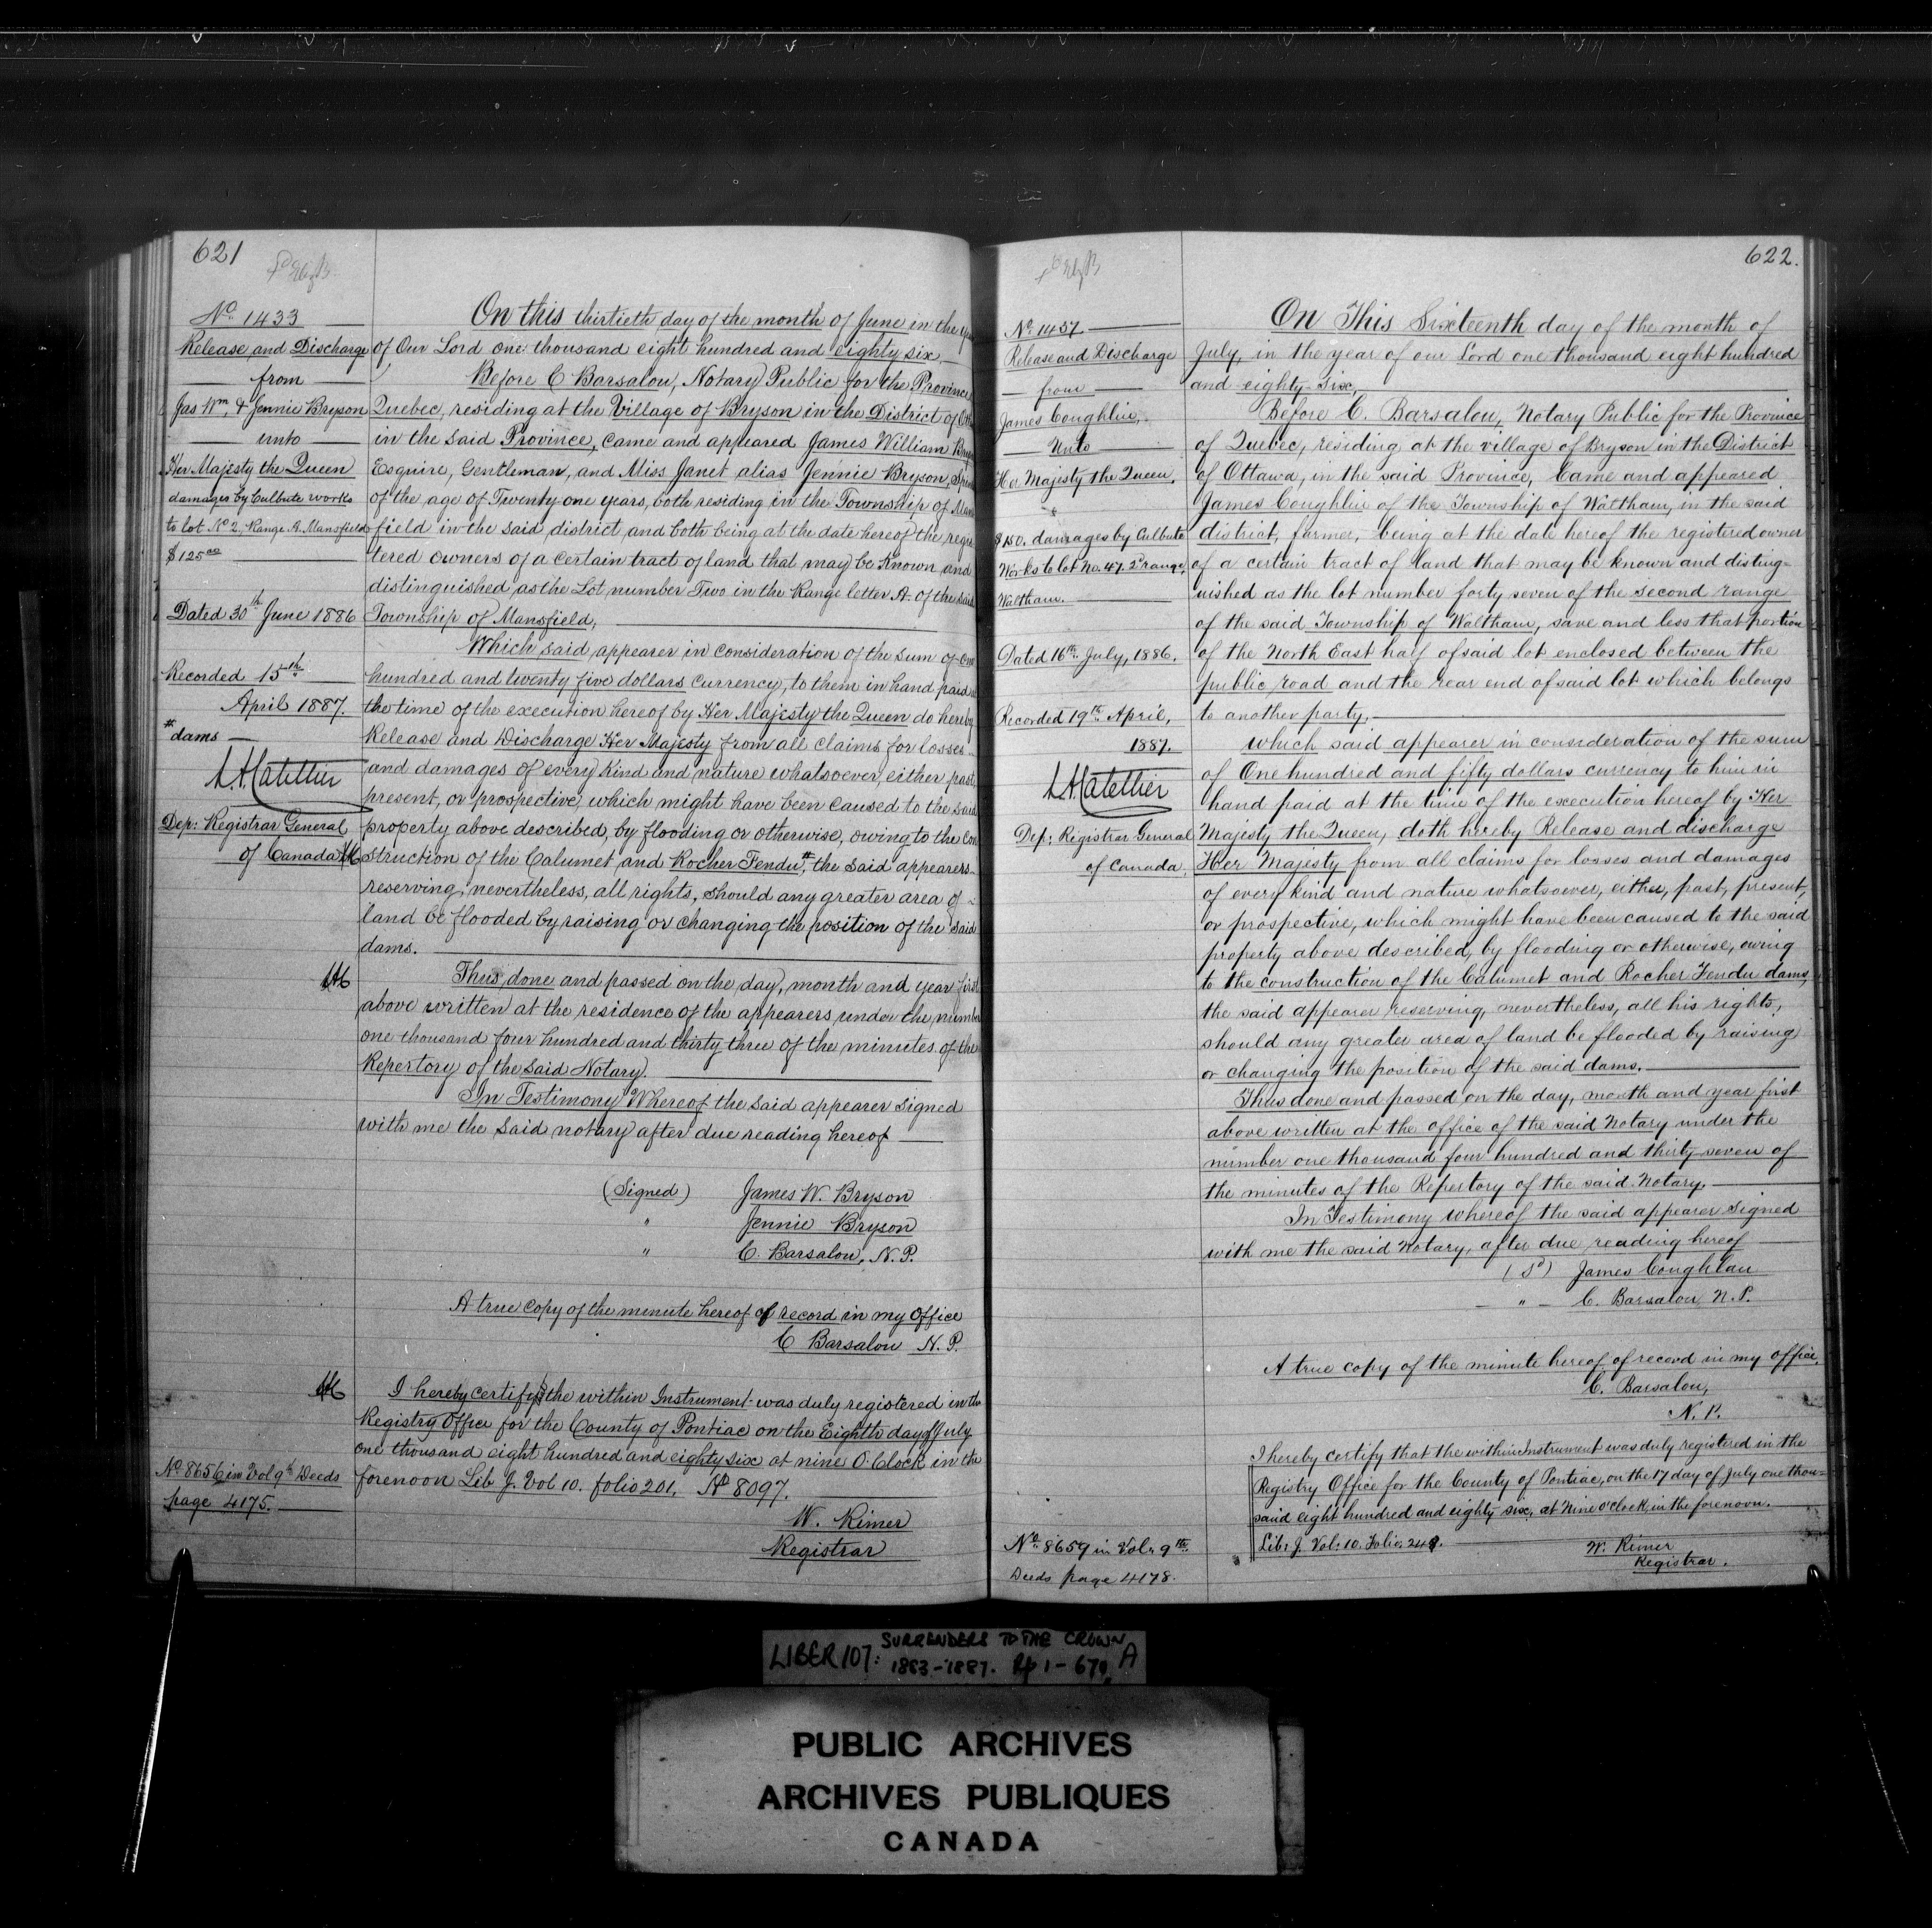 621
No. 1433
Release and Discharge
from
Jas Wm. & Jennie Bryson
unto
Her Majesty the Queen
damages by Culbute works
to lot No 2, Range A. Mansfield
$125 00
Dated 30th June 1886
Recorded 15th
April 1887.
# dams
Dep: Registrar General
of Canada
No 8656 in Vol 9th Deeds
page 4175.
On this thirtieth day of the month of June in the
of Our Lord one thousand eight hundred and eighty six,
Before C Barsalou, Notary Public for the Province
Quebec, residing at the Village of Bryson in the District of
in the said Province, came and appeared James William
Esquire, Gentleman, and Miss Janet alias Jennie Bryson,
of the age of Twenty one years, both residing in the Township of Mans
field in the said district and both being at the date hereof the regis
tered owners of a certain tract of land that may be known and
distinguished as the Lot number Two in the Range letter A. of the said
Township of Mansfield,
Which said appearer in consideration of the sum of One
hundred and twenty five dollars currency, to them in hand paid
the time of the execution hereof by Her Majesty the Queen do hereby
Release and Discharge Her Majesty from all claims for losses
and damages of every kind and nature whatsoever, either past
present, or prospective, which might have been caused to the said
property above described, by flooding or otherwise, owing to the Con
struction of the Calumet and Rocher Fendu #, the said appearers
reserving, nevertheless, all rights, should any greater area of
land be flooded by raising or changing the position of the said
dams.
Thus done and passed on the day, month and year first
above written at the residence of the appearers under the number
one thousand four hundred and thirty three of the minutes of the
Repertory of the said Notary.
In Testimony Whereof the said appearer signed
with me the said notary after due reading hereof
(Signed) James W. Bryson
" Jennie Bryson
" C. Barsalou, N.P.
A true copy of the minute hereof of record in my Office
C Barsalou N.P.
I hereby certify the within Instrument was duly registered in the
Registry Office for the County of Pontiac on the Eighth day of July
one thousand eight hundred and eighty six at nine O'Clock in the
forenoon Lib J. Vol 10. folio 201. No 8097.
W. Rimer
Registrar
622.
No. 1437
Release and Discharge
from
James Coughlin,
Unto
Her Majesty the Queen,
$150. damages by Culbute
Works to lot No. 47. 2d range,
Waltham.
Dated 16th July, 1886.
Recorded 19th April,
1887.
Dep: Registrar General
of Canada.
No. 8659 in Vol. 9th
Deeds page 4178.
On This Sixteenth day of the month of
July, in the year of our Lord one thousand eight hundred
and eighty-six,
Before C. Barsalou, Notary Public for the Province
of Quebec, residing at the village of Bryson in the District
of Ottawa, in the said Province, Came and appeared
James Coughlin of the Township of Waltham, in the said
district, farmer, being at the date hereof the registered owner
of a certain tract of land that may be known and disting=
uished as the lot number forty seven of the second range
of the said Township of Waltham, save and less that portion
of the North East half of said lot enclosed between the
public road and the rear end of said lot which belongs
to another party,
which said appearer in consideration of the sum
of One hundred and fifty dollars currency to him in
hand paid at the time of the execution hereof by Her
Majesty the Queen, doth hereby Release and discharge
Her Majesty from all claims for losses and damages
of every kind and nature whatsoever, either, past, present,
or prospective, which might have been caused to the said
property above described, by flooding or otherwise, owing
to the construction of the Calumet and Rocher Fendu dams,
the said appearer reserving, nevertheless, all his rights,
should any greater area of land be flooded by raising
or changing the position of the said dams.
Thus done and passed on the day, month and year first
above written at the office of the said Notary under the
number one thousand four hundred and thirty-seven of
the minutes of the Repertory of the said Notary.
In Testimony whereof the said appearer signed
with me the said Notary, after due reading hereof
(Sd) James Coughlan
" C. Barsalou, N.P.
A true copy of the minute hereof of record in my office,
C. Barsalou,
N.P.
I hereby certify that the within Instrument was duly registered in the
Registry Office for the County of Pontiac, on the 17 day of July one thou=
sand eight hundred and eighty six, at Nine o'clock, in the forenoon.
Lib: J. Vol: 10. Folio:
W. Rimer
Registrar.
LIBER 107: SURRENDERS TO THE CROWN
1883-1887. Pp 1-670, A
PUBLIC ARCHIVES
ARCHIVES PUBLIQUES
CANADA